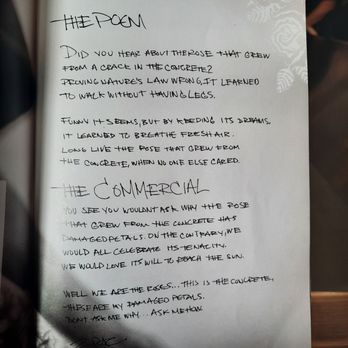 THE POEM
DID YOU HEAR ABOUT THE ROSE THAT GREW
FROM A CRACK IN THE CONCRETE?
PROVING NATURE'S LAW WRONG, IT LEARNED
TO WALK WITHOUT HAVING LEGS.
FUNNY IT SEEMS, BUT BY KEEPING ITS DREAMS,
IT LEARNED TO BREATHE FRESH AIR.
LONG LIVE THE ROSE THAT GREW FROM
THE CONCRETE, WHEN NO ONE ELSE CARED.
THE COMMERCIAL
YOU SEE YOU WOULDNT ASK WHY THE ROSE
THAT GREW FROM THE CONCRETE HAS
DAMAGED PETALS. ON THE CONTRARY, WE
WOULD ALL CELEBRATE ITS TENACITY.
WE WOULD LOVE ITS WILL TO REACH THE SUN.
WELL WE ARE THE ROSES... THIS IS THE CONCRETE,
THESE ARE MY DAMAGED PETALS.
DONT ASK ME WHY... ASK ME HOW.